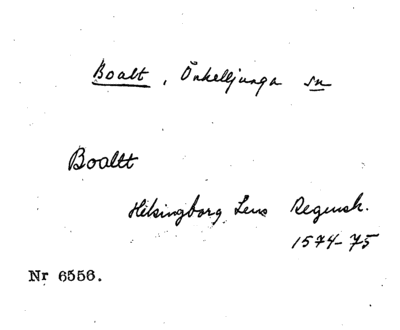 Boalt, Örkelljunga sn
Boaltt
Helsingborg Lens Regensk.
1574-75
Nr 6556.